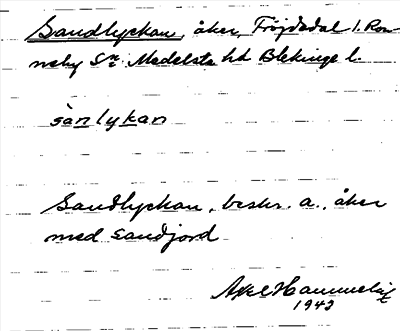 Sandlyckan, åker, Fröjdadal l. Ron-
neby Sn. Medelsta hd Blekinge l.
sànlykan
Sandlyckan, beskr. a., åker
med sandjord
Axel
1943